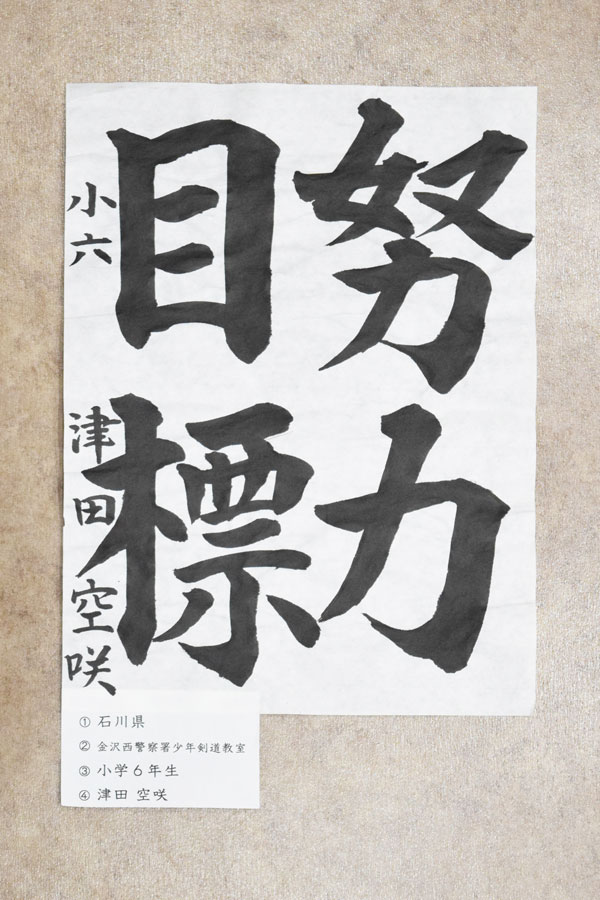 努力
目標
小六 津田空咲
① 石川県
② 金沢西警察署少年剣道教室
③ 小学6年生
④ 津田 空咲